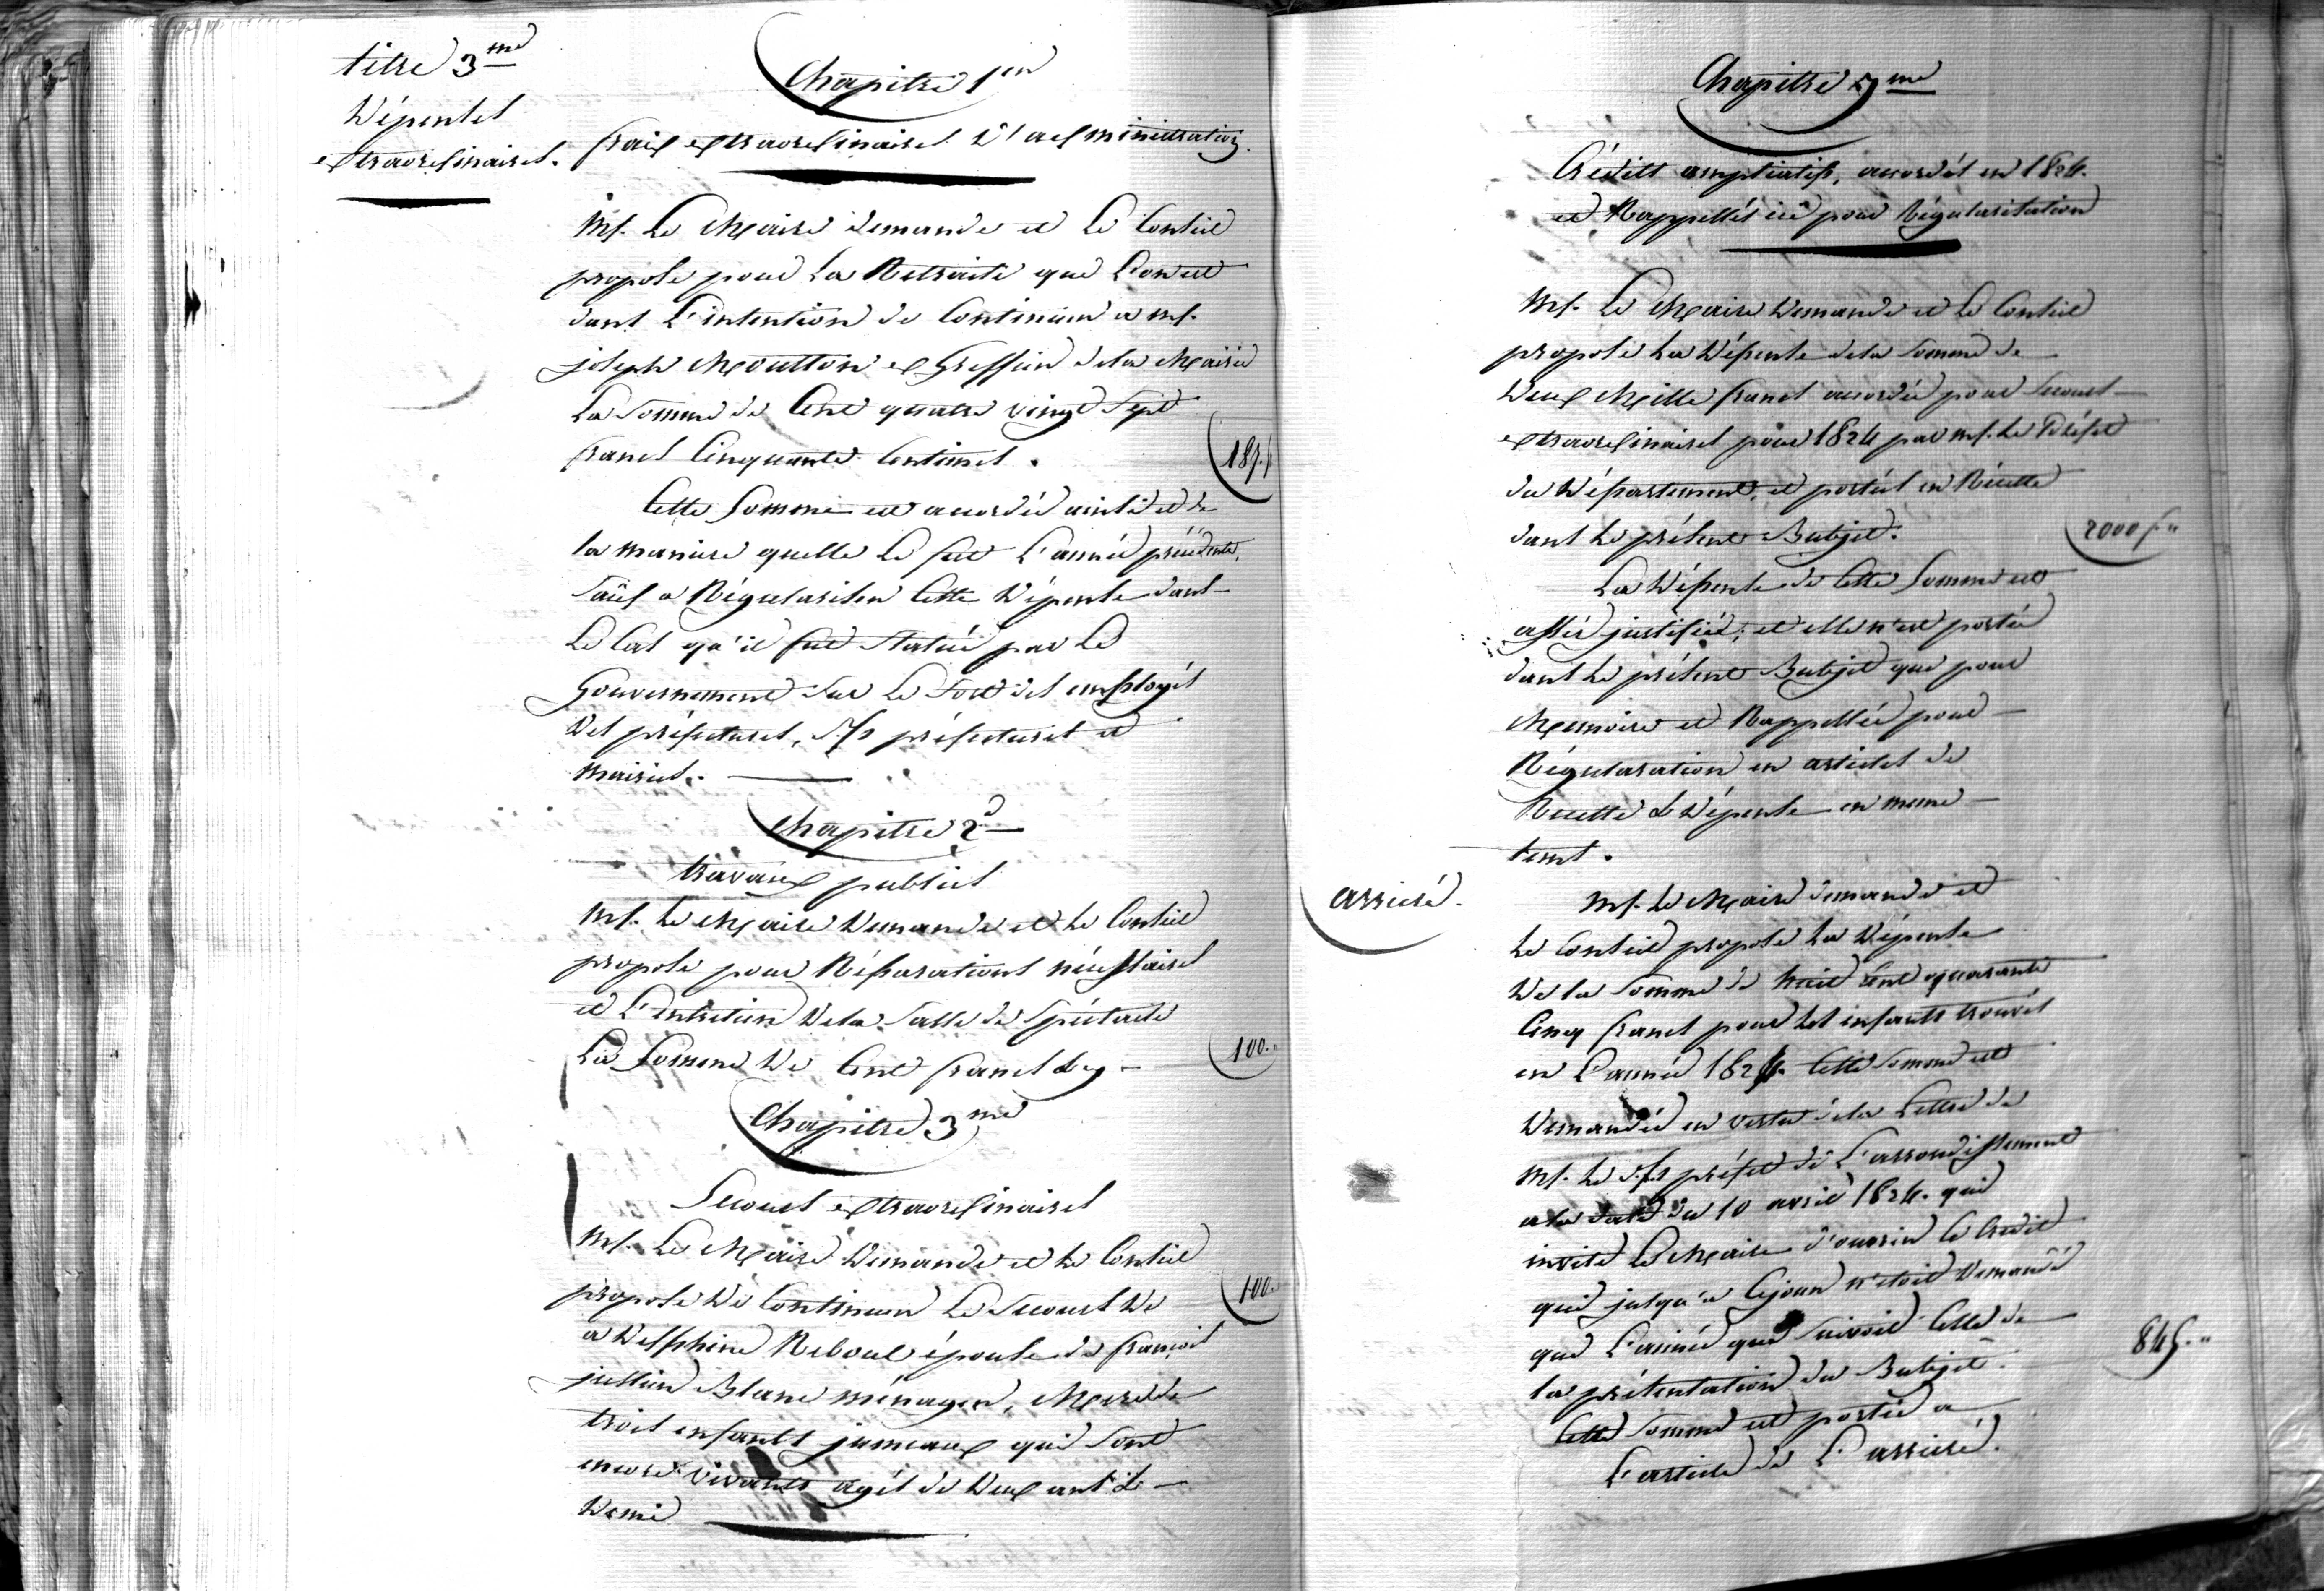 titre 3me
Dépenses
extraordinaires.
Chapitre 1er
frais extraordinaires d'administration.
Mr. Le Maire demande et Le Conseil
propose pour La Retraite que L'on est
dans L'intention de Continuer a mr.
joseph Moutton ex Greffier dela Mairie
La Somme de Cent quatre vingt Sept
francs Cinquante Centimes.
187.f
Cette Somme est accordée ainsi et de
la maniere quelle Le fut L'année précédente,
Sauf a Régulariser Cette Dépense dans
Le Cas qu'il fut Statué par Le
Gouvernement Sur Le Sort des employés
Des préfectures, s/s préfectures et
mairies.
Chapitre 2d
travaux publics
Mr. Le Maire Demande et Le Conseil
propose pour Réparations nécessaires
et L'entretien De la Salle de Spéctacle
La Somme De Cent francs Cy
100."
Chapitre 3me
Secours extraordinaires
Mr. Le Maire Demande et Le Conseil
propose De Continuer Le Secours De
100.
a Delphine Reboul épouse de francois
justin Blanc ménager, Mere de
trois enfants jumeaux qui Sont
encore vivants agés de Deux ans &
Demi
Chapitre 5me
Crédits ampliatifs, accordés en 1824.
et Rappellés ici pour Régularisation
Mr. Le Maire Demande et Le Conseil
propose La Dépense dela Somme de
Deux Mille francs accordée pour Secours
extraordinaires pour 1824 par mr. Le Préfet
du Département, et portés en Récette
dans Le présent Budjet.
2000 f. "
La Dépense de Cette Somme est
assés justifiée; et elle n'est portée
dans Le présent Budjet que pour
Memoire et Rappellée pour
Régularation en articles de
Recette & Dépense en meme
tems.
arrieré.
Mr. Le Maire demande et
Le Conseil propose La Dépense
De la Somme de huit Cent quarante
Cinq francs pour Les enfants trouvés
en L'année 1824. Cette Somme est
Demandée en vertu dela Lettre de
Mr. Le s/s préfet de L'arrondissement
a la date du 10 avril 1824. qui
invite Le Maire d'ouvrir Le Credit
qui jusqu'a Cejour n'etoit Demandé
que L'année qui Suivoit Celle de
la présentation du Budjet.
845. "
Cette Somme est portée a
L'article de L'arrieré.